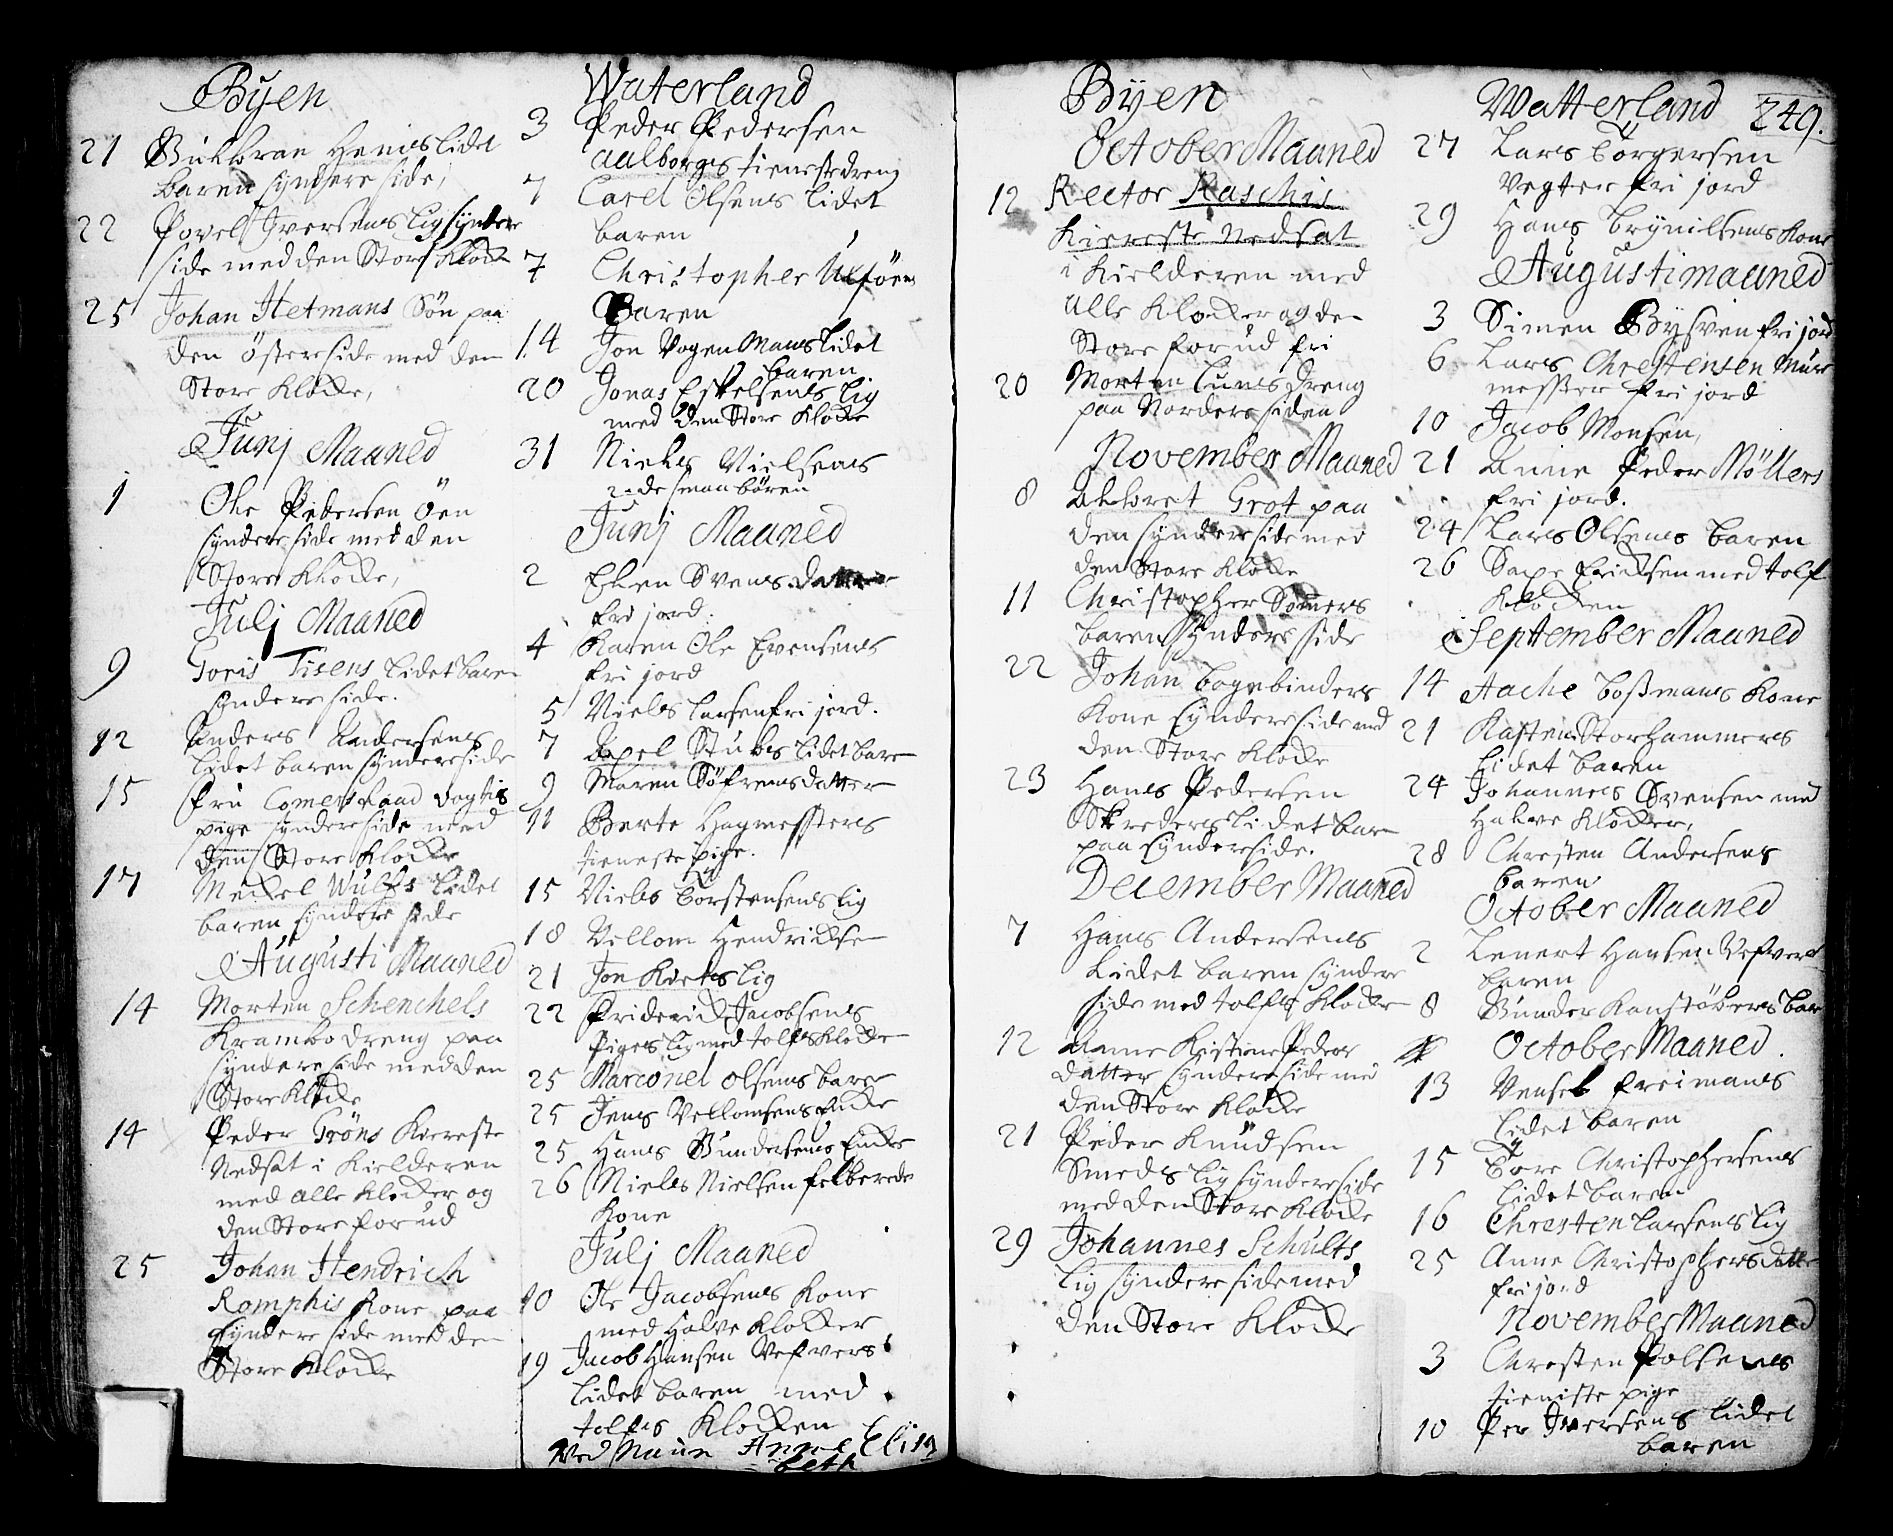 Byen
21 Henies lidet
baren syndere side,
22 Povel Iversens lig syndre
side med den Store Klocke
25 Johan Hetmans Sön paa
den östere side med den
Store Klocke,
Junj Maaned
1 Ole Pedersen öen
syndere side med den
Store Klocke,
Julj Maaned
9 Goris Tisens lidet baren
syndere side.
12 Anders Andersens
lidet baren syndere side
15 fru Comersraad Vogtis
pige syndere side med
den Store Klocke
17 Meckel Wulfs lidet
baren syndere side
Augusti Maaned
14 Morten Schenchels
Krambodreng paa
syndere side med den
Store Klocke
14 Peder Gröns Kiereste
Nedsat i Kielderen
med alle Klocker og
den Store forud
25 Johan Hendrich
Romphis Kone paa
syndere side med den
Store Klocke
Waterland
3 Peder Pedersen
aalborgs tienestedreng
7 Carel Olsens lidet
baren
7 Christopher
Baren
14 Jon Vogenmans lidet
baren
20 Jonas Eskelsens lig
med den Store Klocke
31 Niels Nielsens
2de smaa börn
Junj Maaned
2 Elen Svens datter
fri jord.
4 Karen Ole Evensens
fri jord
5 Niels Larsen fri jord.
7 Axel Stubs lidet bare
9 Maren Söfrensdatter
11 Berte Hagmesters
tieneste pige.
15 Niels Torstensens lig
18 Vellom Hendricksen
21 Jon Kieks lig
22 friderick Jacobsens
Piges lig med tolf Klocke
25 olsens bare
25 Jens Vellomsens Encke
25 Hans Gundersens Encke
26 Niels Nielsen felberede
Kone
Julj Maaned
10 Ole Jacobsens Kone
med Halve Klocker
19 Jacob Hansen Vefvers
lidet baren med
tolf Klocken
Ved Naun Anne Elisa
beth
Byen
October Maaned
12 Rector Raschis
Kiereste Nedsat
i Kielderen med
Alle Klocker og den
Store forud fri
20 Morten Lunds dreng
paa Nordere siden
November Maaned
8 Albret Grot paa
den syndere side med
den Store Klocke
11 Christopher Somers
baren syndere side
22 Johan bogebinders
Kone syndere side med
den Store Klocke
23 Hans Pedersen
Skreders lidet bare
paa syndere side.
December Maaned
7 Hans Andersens
lidet baren syndere
side med tolf Klocke
12 Anne Kistine Peders
datter syndere side med
den Store Klocke
21 Peder Knudsen
Smeds lig syndere side
med den Store Klocke
29 Johannes Schults
lig syndere side med
den Store Klocke
Watterland 249.
27 Lars Torgersen
Vegter fri jord
29 Hans Brynilsens Kone
Augusti maaned
3 Simen Bysven fri jord
6 Lars Chrestensen Mur
mester fri jord
10 Jacob Monsen,
21 Anne Peder Möllers
fri jord.
24 Lars Olsens baren
26 Saxe Ericksen med tolf
Klocken
September Maaned
14 Aache Boßmans Kone
21 Karsten Storhammers
lidet baren
24 Johannes Svensen med
Halve Klocker,
28 Chresten Andersens
baren
October Maaned
2 Lenert Hansen Vefvers
baren
8 Gunder Kanstöbers bar
October Maaned.
13 Vensel freimans
lidet baren
15 Tore Christophersens
lidet baren
16 Chresten Larsens lig
25 Anne Christophersdatter
fri jord
November Maaned
3 Chresten Polsens
tieniste pige
10 Per Iversens lidet
baren